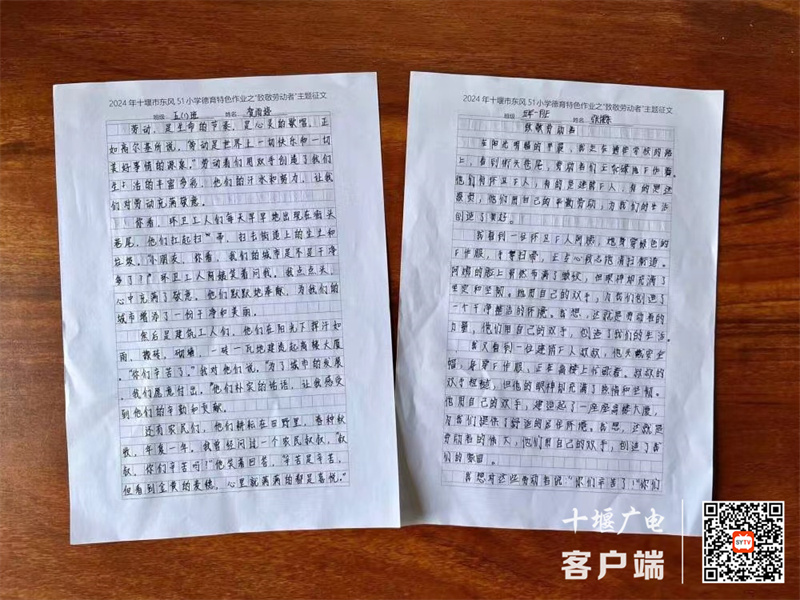 2024年十堰市东风51小学德育特色作业之"致敬劳动者"主题征文
班级 五(1)班 姓名
劳动，是生命的节奏，是心灵的歌唱。正
如高尔基所说，"劳动是世界上一切快乐和一切
美好事情的源泉。"劳动者们用双手创造了我们
生活的丰富多彩，他们的汗水和努力，让我
们对劳动充满敬意。
你看，环卫工人们每天早早地出现在街头
巷尾，他们扛起扫帚，扫去街道上的尘土和
垃圾。"小朋友，你看，我们的城市是不是干净
多了？"环卫工人有时笑着问我。我点点头，
心中充满了敬意。他们默默地奉献，为我们的
城市增添了一份干净和美丽。
然后是建筑工人们，他们在阳光下挥汗如
雨，搬砖、砌墙，一砖一瓦地建造起高楼大厦。
"你们辛苦了。"我对他们说。"为了城市的发展，
我们愿意付出。"他们朴实的话语，让我感受
到他们的辛勤和贡献。
还有农民们，他们耕耘在田野里，春种秋
收，年复一年。我曾经问过一个农民叔叔，"叔
叔，你们辛苦吗？"他笑着回答，"辛苦是辛苦，
但看到金黄的麦穗，心里就满满的都是喜悦。"
2024年十堰市东风51小学德育特色作业之"致敬劳动者"主题征文
班级 姓名
致敬劳动者
在阳光明媚的早晨，我走在通往学校的路
上，看到街头巷尾，劳动者们正在忙碌地工作着。
他们有环卫工人，有的是建筑工人，有的是送
报员，他们用自己的辛勤劳动，为我们的生活
创造了美好。
我看到一位环卫工人阿姨，她身穿绿色的
工作服，手拿扫帚，正专心致志地清扫街道。
阿姨的脸上虽然布满了皱纹，但眼神却充满了
坚定和坚韧。她用自己的双手，为我们创造了
一个干净整洁的环境。我想，这就是劳动者的
力量，他们用自己的双手，创造了我们的生活。
我又看到一位建筑工人叔叔，他头戴安全
帽，身穿工作服，正在高楼上忙碌着。叔叔的
双手粗糙，但他的眼神却充满了热情和坚韧。
他用自己的双手，建造起了一座座高楼大厦，
为我们提供了舒适的居住环境。我想，这就是
劳动者的伟大，他们用自己的双手，创造了我
们的家园。
我想对这些劳动者说："你们辛苦了！"你们
十堰广电
客户端
SYTV